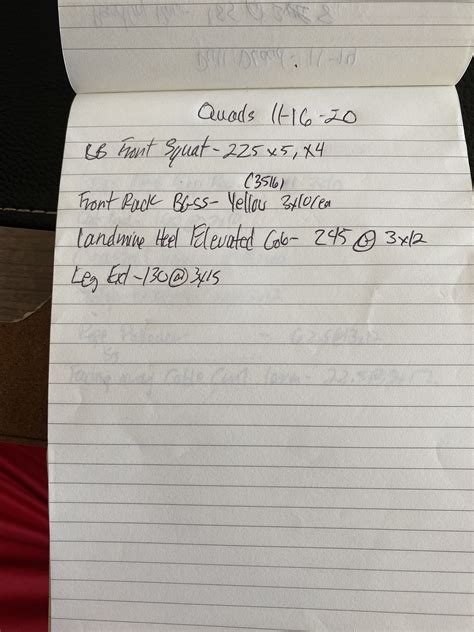 Quads 11-16-20
BB Front Squat - 225 x5, x4
(35lb)
Front Rack BG-SS - Yellow 3x10/ea
Landmine Heel Elevated Gob - 245 @ 3x12
Leg Ext - 130 @ 3x15